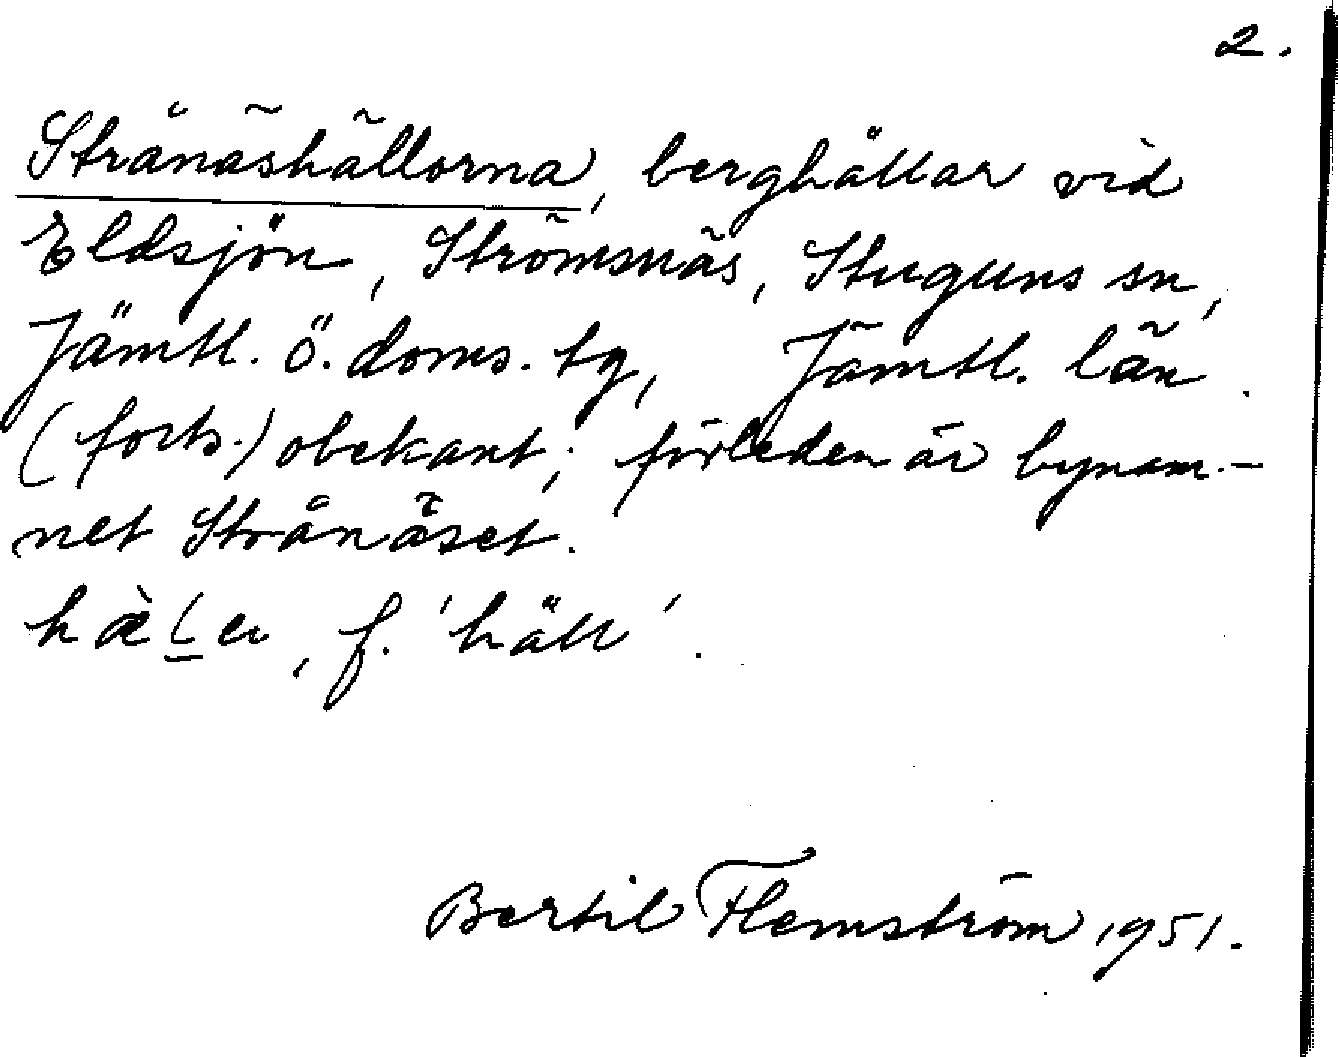 2.
Strånäshällorna, berghällar vid
Eldsjön, Strömsnäs, Stuguns sn,
Jämtl. ö. doms. tg, Jämtl. län.
(forts.) obekant; förleden är bynam-
net Strånäset.
hæ̀l̲er, f. 'häll'.
Bertil Flemström 1951.